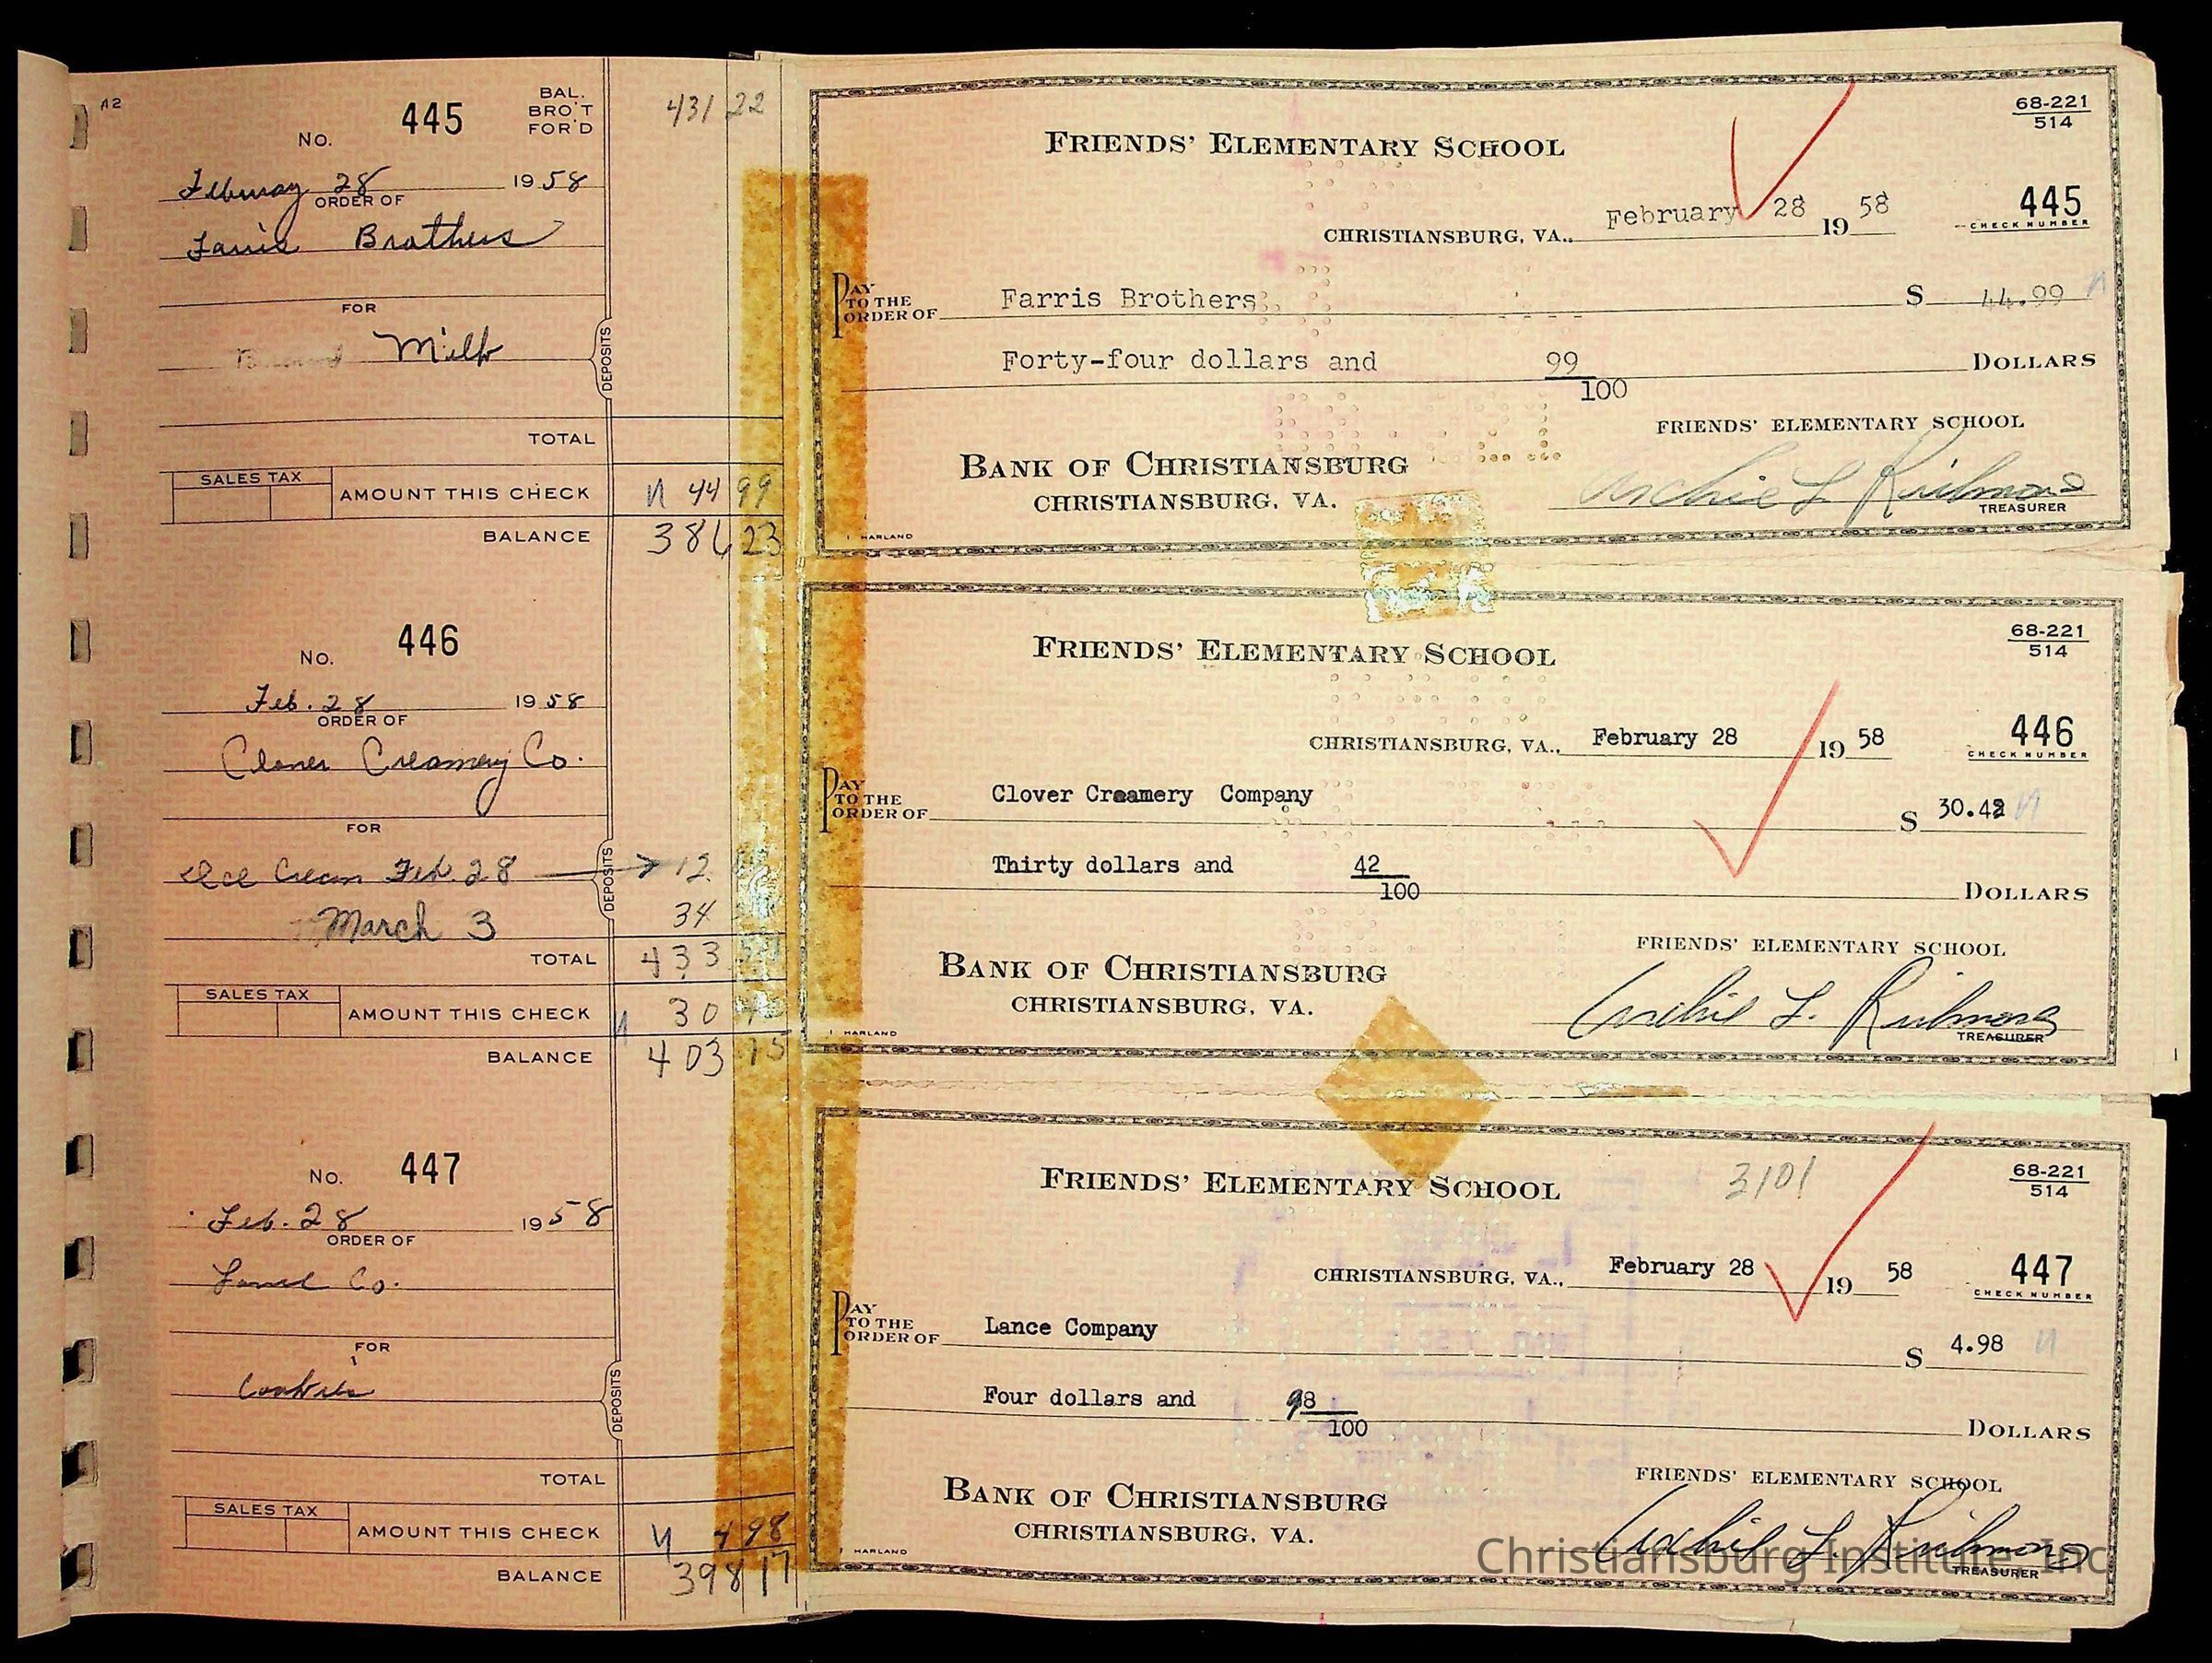 A2
No. 445
BAL. BRO'T FOR'D
431 22
February 28 1958
ORDER OF
Farris Brothers
FOR
Milk
DEPOSITS
TOTAL
SALES TAX
AMOUNT THIS CHECK
44 99
BALANCE
386 23
No. 446
Feb. 28 1958
ORDER OF
Clover Creamery Co.
FOR
Ice Cream Feb. 28 → 12
March 3 34
DEPOSITS
TOTAL 433
SALES TAX
AMOUNT THIS CHECK 30
BALANCE 403 15
No. 447
Feb. 28 1958
ORDER OF
Lance Co.
FOR
Cookies
DEPOSITS
TOTAL
SALES TAX
AMOUNT THIS CHECK
4 98
BALANCE
398 17
FRIENDS' ELEMENTARY SCHOOL
68-221
514
CHRISTIANSBURG, VA., February 28 19 58
445
CHECK NUMBER
PAY TO THE ORDER OF Farris Brothers $ 44.99
Forty-four dollars and 99/100 DOLLARS
FRIENDS' ELEMENTARY SCHOOL
BANK OF CHRISTIANSBURG
CHRISTIANSBURG, VA.
Archie L. Richmond
TREASURER
HARLAND
FRIENDS' ELEMENTARY SCHOOL
68-221
514
CHRISTIANSBURG, VA., February 28 19 58
446
CHECK NUMBER
PAY TO THE ORDER OF Clover Creamery Company $ 30.42
Thirty dollars and 42/100 DOLLARS
FRIENDS' ELEMENTARY SCHOOL
BANK OF CHRISTIANSBURG
CHRISTIANSBURG, VA.
Archie L. Richmond
TREASURER
HARLAND
FRIENDS' ELEMENTARY SCHOOL
3101
68-221
514
CHRISTIANSBURG, VA., February 28 19 58
447
CHECK NUMBER
PAY TO THE ORDER OF Lance Company $ 4.98
Four dollars and 98/100 DOLLARS
FRIENDS' ELEMENTARY SCHOOL
BANK OF CHRISTIANSBURG
CHRISTIANSBURG, VA.
Archie L. Richmond
TREASURER
HARLAND
Christiansburg Institute, Inc